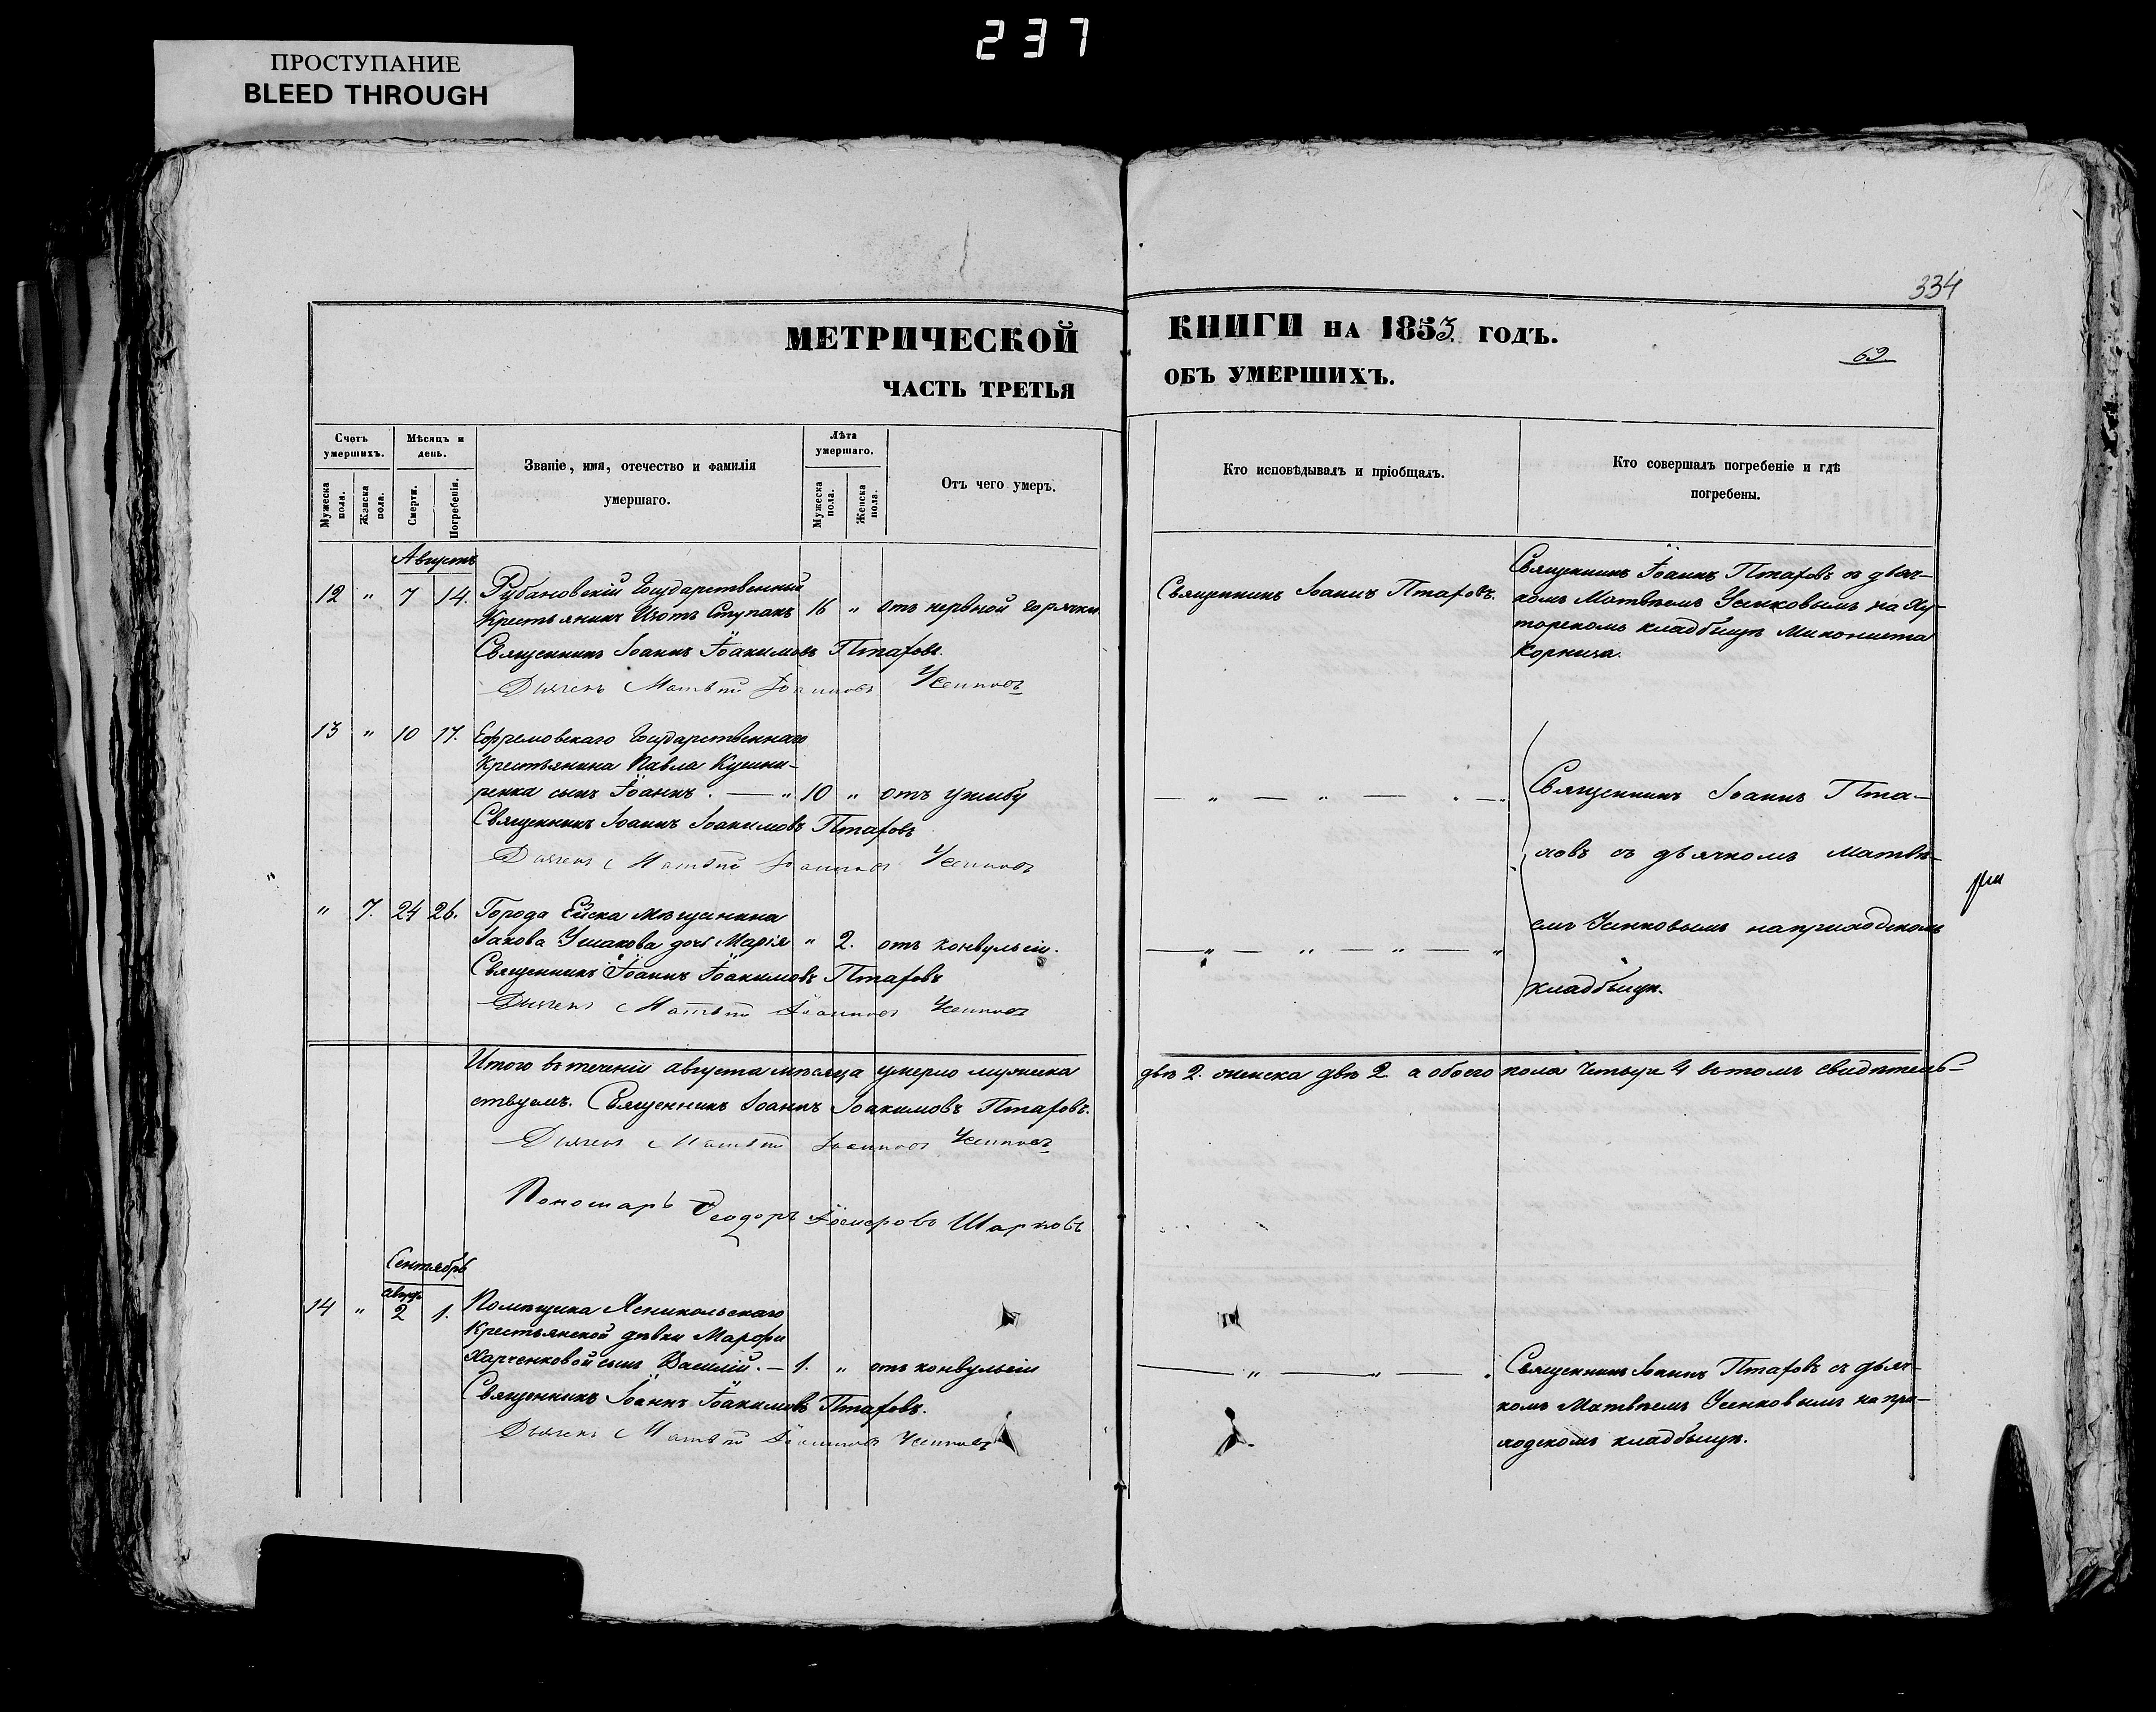 237
ПРОСТУПАНИЕ
BLEED THROUGH
334
МЕТРИЧЕСКОЙ КНИГИ НА 1853. ГОДЪ.
69
ЧАСТЬ ТРЕТЬЯ ОБЪ УМЕРШИХЪ.
Счетъ умершихъ.
Мужеска пола.
Женска пола.
Мѣсяцъ и день.
Смерти.
Погребенія.
Званіе, имя, отечество и фамилія
умершаго.
Лѣта умершаго.
Мужеска пола.
Женска пола.
Отъ чего умеръ.
Кто исповѣдывалъ и пріобщалъ.
Кто совершалъ погребеніе и гдѣ
погребены.
Августъ
12 " 7 14. Рубановскій Государственный
Крестьянинъ Изотъ Ступакъ 16 " отъ нервной горячки
Священникъ Іоаннъ Іоакимовъ Птаховъ.
Дьячекъ Матѳей Іоанновъ Усенковъ
Священникъ Іоаннъ Птаховъ.
Священникъ Іоаннъ Птаховъ съ дьяч-
комъ Матвѣемъ Усенковымъ на Ху-
торскомъ кладбищѣ
Корниса.
13 " 10 17. Ефремовскаго Государственнаго
Крестьянина Павла Кушни-
ренка сынъ Іоаннъ. — " 10 " отъ ушибу
Священникъ Іоаннъ Іоакимовъ Птаховъ
Дьячекъ Матѳей Іоанновъ Усенковъ
— " — " — " —
Священникъ Іоаннъ Пта-
ховъ съ дьячкомъ Матвѣ-
емъ Усенковымъ на приходскомъ
кладбищѣ.
" 7. 24 26. Города Ейска мѣщанина
Іакова Ушакова дочь Марія " 2. отъ конвульсіи.
Священникъ Іоаннъ Іоакимовъ Птаховъ
Дьячекъ Матѳей Іоанновъ Усенковъ
— " — " — " — "
Итого въ теченіи августа мѣсяца умерло мужеска два 2. женска двѣ 2 а обоего пола четыре 4 въ томъ свидѣтель-
ствуемъ. Священникъ Іоаннъ Іоакимовъ Птаховъ.
Дьячекъ Матѳей Іоанновъ Усенковъ
Пономарь Ѳеодоръ Шарковъ
Сентябрь
14 " 2 1. Помѣщика
Крестьянской дѣвки Марфы
Харченковой сынъ Василій. — 1. " отъ конвульсіи
Священникъ Іоаннъ Іоакимовъ Птаховъ.
Дьячекъ Матѳей Іоанновъ Усенковъ
— " — " — "
Священникъ Іоаннъ Птаховъ съ дьяч-
комъ Матвѣемъ Усенковымъ на при-
ходскомъ кладбищѣ.